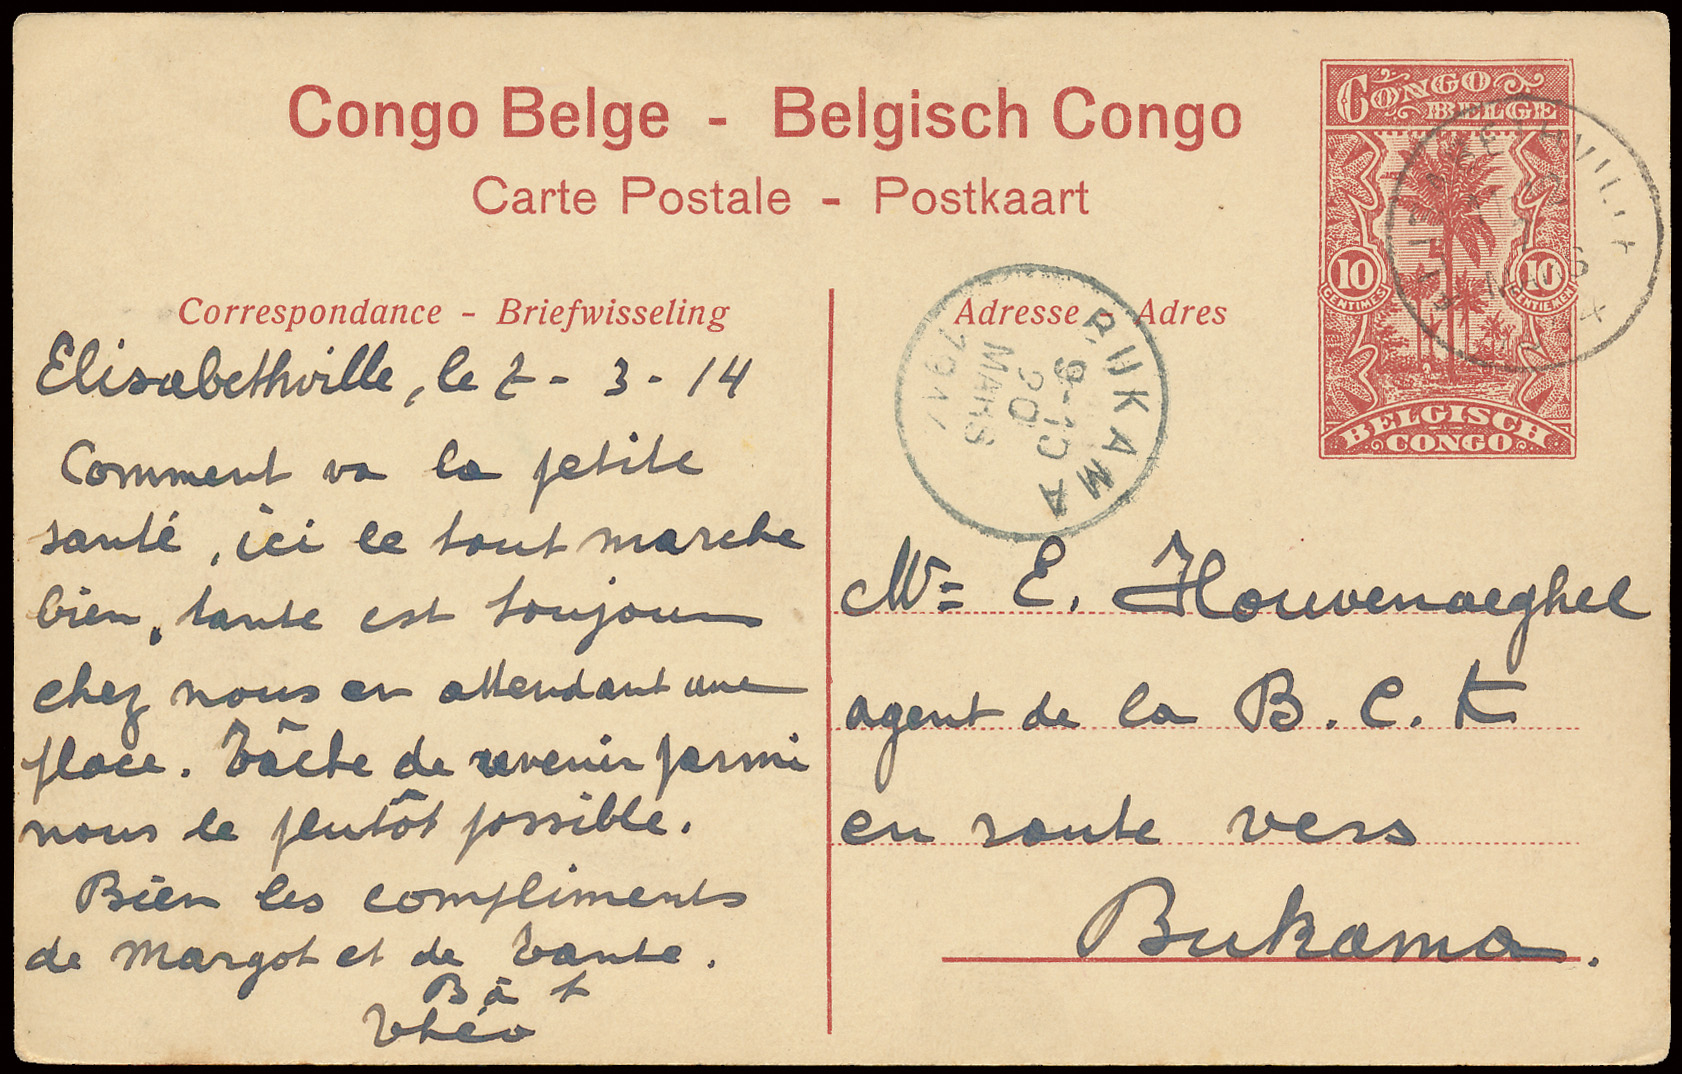 Congo Belge - Belgisch Congo
Carte Postale - Postkaart
CONGO
BELGE
10 10
CENTIMES CENTIEMEN
BELGISCH
CONGO
Correspondance - Briefwisseling
Adresse - Adres
BUKAMA
9-10
20
MARS
Elisabethville, le 7 - 3 - 14
Comment va la petite
santé, ici le tout marche
bien, tante est toujours
chez nous en attendant une
place. Tâche de revenir parmi
nous le plutôt possible.
Bien les compliments
de Margot et de tante.
B à t
Théo
Mr = E. Houvenaeghel
agent de la B. C. K
en route vers
Bukama.